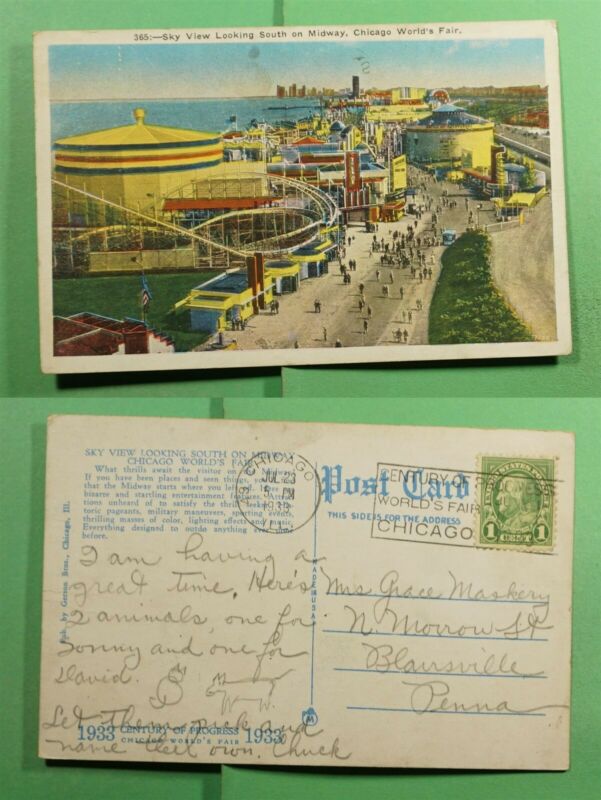 365:—Sky View Looking South on Midway, Chicago World's Fair.
SKY VIEW LOOKING SOUTH ON MIDWAY
CHICAGO WORLD'S FAIR
What thrills await the visitor on the Midway.
If you have been places and seen things, you
that the Midway starts where you left off. In
bizarre and startling entertainment features. Attrac-
tions unheard of to satisfy the thrill seeking. His-
toric pageants, military maneuvers, sporting events,
thrilling masses of color, lighting effects and music.
Everything designed to outdo anything ever
before.
Pub. by Gerson Bros., Chicago, Ill.
CHICAGO
JUL 23
PM
Post Card
THIS SIDE IS FOR THE ADDRESS
CENTURY OF PROGRESS
WORLD'S FAIR
CHICAGO
UNITED STATES POSTAGE
1 CENT 1
MADE IN USA
I am having a
great time. Here's
2 animals, one for
Sonny and one for
David.
Let them pick and
name their own. Chuck
1933 CENTURY OF PROGRESS 1933
CHICAGO WORLD'S FAIR
Mrs Grace Maskery
N Morrow St
Blairsville
Penna